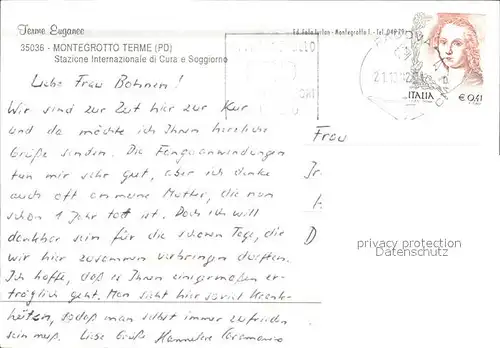 Terme Euganee
35036 - MONTEGROTTO TERME (PD)
Stazione Internazionale di Cura e Soggiorno
ITALIA
€ 0,41
Liebe Frau Bohnen!
Wir sind zur Zeit hier zur Kur
und da möchte ich Ihnen herzliche
Grüße senden. Die Fangoanwendungen
tun mir sehr gut, aber ich denke
auch oft an meine Mutter, die nun
schon 1 Jahr tot ist. Doch ich will
dankbar sein für die schönen Tage, die
wir hier zusammen verbringen durften.
Ich hoffe, daß es Ihnen einigermaßen er-
träglich geht. Man sieht hier soviel Krank-
heiten, sodaß man selbst immer zufrieden
sein muß. Liebe Grüße Hannelore
Frau
D
privacy protection
Datenschutz